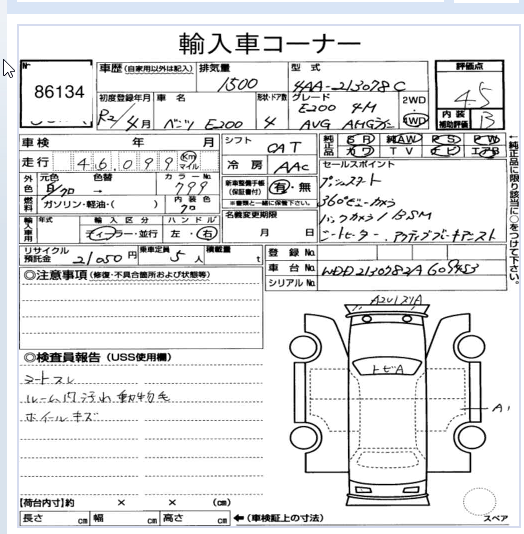 輸入車コーナー
No. 86134
車歴 (自家用以外は記入)
排気量 1500
型式 4AA-213078C
評価点 4.5
内装補助評価 B
初度登録年月 R2/4月
車名 ベンツ E200
形状・ドア数 4
グレード E200 4M AVG AMGライン
2WD 4WD
車検 年 月
シフト OAT
純正品 SR 純AW PS PW カワ TV ナビ エアB
走行 46,099 Km マイル
冷房 AAC
セールスポイント
外色 元色 白/クロ → 色替
カラーNo. 799
内装色 クロ
新車整備手帳(保証書付) 有・無
※書類と一緒に保管下さい。
プッシュスタート
360°ビューカメラ
バックカメラ/BSM
シートヒーター・アクティブパーキングアシスト
燃料 ガソリン・軽油・( )
名義変更期限 月 日
輸入車用 年式 輸入区分 ディーラー・並行 ハンドル 左・右
リサイクル預託金 21050円
乗車定員 5人
積載量 t
登録No.
車台No. WDD2130782A609453
シリアルNo.
←純正品に限り該当に○をつけて下さい。
◎注意事項 (修復・不具合箇所および状態等)
◎検査員報告 (USS使用欄)
シートスレ
ルーム内汚れ 動物毛
ホイールキズ
トビA
A1
スペア
【荷台内寸】約 × × (cm)
長さ cm 幅 cm 高さ cm ←(車検証上の寸法)